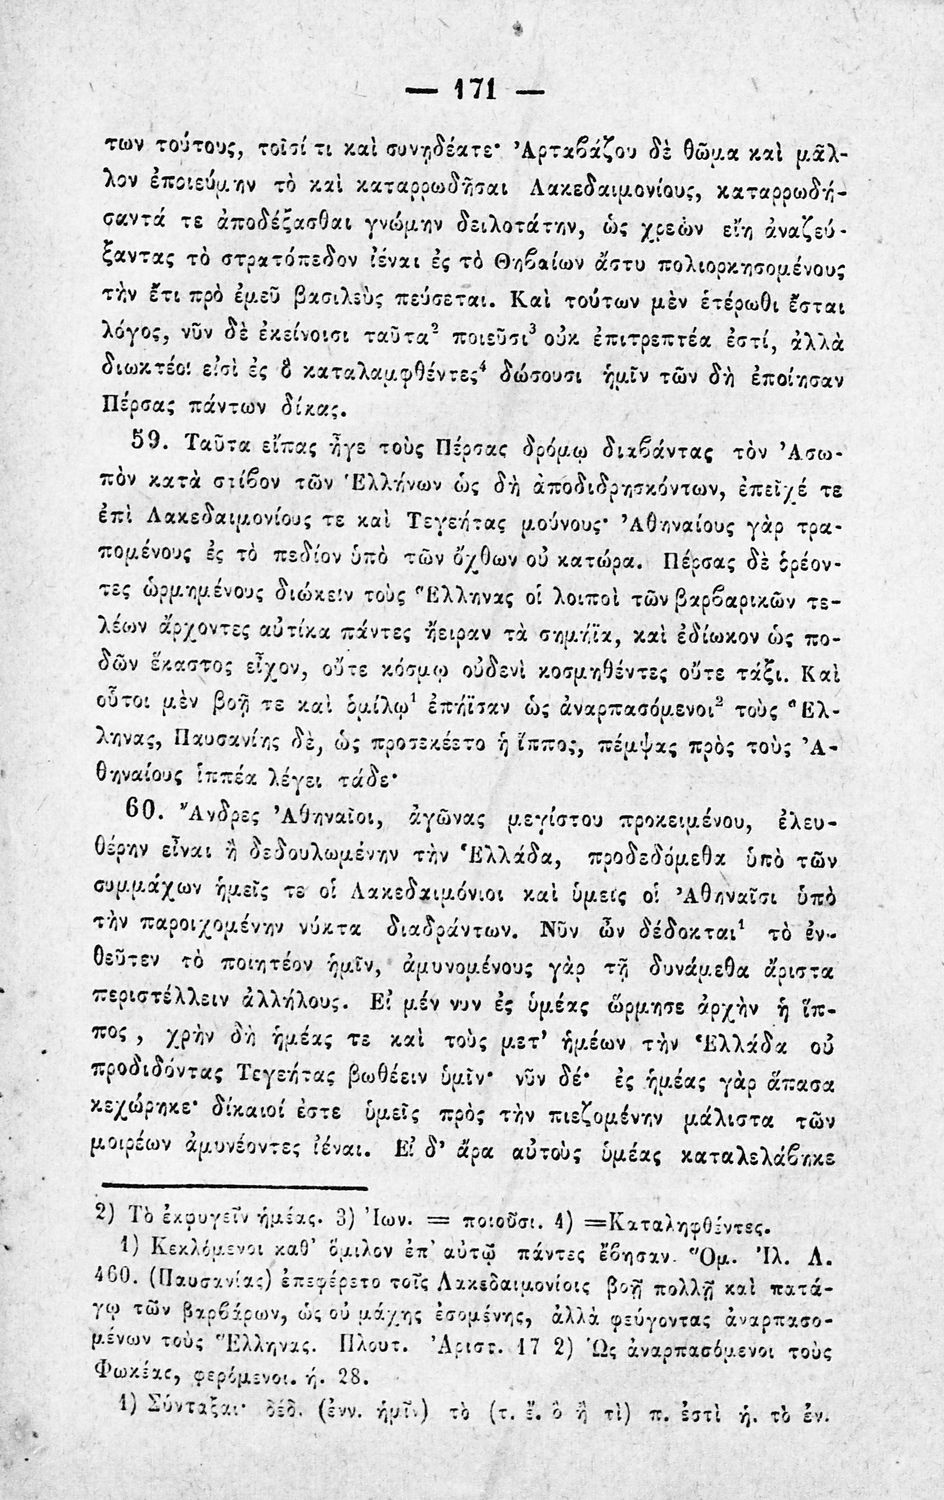 — 171 —
των τούτους, τοῖσί τι καὶ συνῃδέατε· Ἀρταϐάζου δὲ θῶμα καὶ μᾶλ-
λον ἐποιεύμην τὸ καὶ καταρρωδῆσαι Λακεδαιμονίους, καταρρωδή-
σαντά τε ἀποδέξασθαι γνώμην δειλοτάτην, ὡς χρεὼν εἴη ἀναζεύ-
ξαντας τὸ στρατόπεδον ἰέναι ἐς τὸ Θηϐαίων ἄστυ πολιορκησομένους
τὴν ἔτι πρὸ ἐμεῦ βασιλεὺς πεύσεται. Καὶ τούτων μὲν ἑτέρωθι ἔσται
λόγος, νῦν δὲ ἐκείνοισι ταῦτα² ποιεῦσι³ οὐκ ἐπιτρεπτέα ἐστί, ἀλλὰ
διωκτέοι εἰσὶ ἐς ὃ καταλαμφθέντες⁴ δώσουσι ἡμῖν τῶν δὴ ἐποίησαν
Πέρσας πάντων δίκας.
59. Ταῦτα εἴπας ἦγε τοὺς Πέρσας δρόμῳ διαϐάντας τὸν Ἀσω-
πὸν κατὰ στίϐον τῶν Ἑλλήνων ὡς δὴ ἀποδιδρησκόντων, ἐπεῖχέ τε
ἐπὶ Λακεδαιμονίους τε καὶ Τεγεήτας μούνους· Ἀθηναίους γὰρ τρα-
πομένους ἐς τὸ πεδίον ὑπὸ τῶν ὄχθων οὐ κατώρα. Πέρσας δὲ ὁρέον-
τες ὡρμημένους διώκειν τοὺς Ἕλληνας οἱ λοιποὶ τῶν βαρϐαρικῶν τε-
λέων ἄρχοντες αὐτίκα πάντες ἤειραν τὰ σημήϊα, καὶ ἐδίωκον ὡς πο-
δῶν ἕκαστος εἶχον, οὔτε κόσμῳ οὐδενὶ κοσμηθέντες οὔτε τάξι. Καὶ
οὗτοι μὲν βοῇ τε καὶ ὁμίλῳ¹ ἐπήϊσαν ὡς ἀναρπασόμενοι² τοὺς Ἕλ-
ληνας, Παυσανίης δὲ, ὡς προσεκέετο ἡ ἵππος, πέμψας πρὸς τοὺς Ἀ-
θηναίους ἱππέα λέγει τάδε·
60. Ἄνδρες Ἀθηναῖοι, ἀγῶνας μεγίστου προκειμένου, ἐλευ-
θέρην εἶναι ἢ δεδουλωμένην τὴν Ἑλλάδα, προδεδόμεθα ὑπὸ τῶν
συμμάχων ἡμεῖς τε οἱ Λακεδαιμόνιοι καὶ ὑμεῖς οἱ Ἀθηναῖσι ὑπὸ
τὴν παροιχομένην νύκτα διαδράντων. Νῦν ὦν δέδοκται¹ τὸ ἐν-
θεῦτεν τὸ ποιητέον ἡμῖν, ἀμυνομένους γὰρ τῇ δυνάμεθα ἄριστα
περιστέλλειν ἀλλήλους. Εἰ μέν νυν ἐς ὑμέας ὥρμησε ἀρχὴν ἡ ἵπ-
πος, χρὴν δὴ ἡμέας τε καὶ τοὺς μετ' ἡμέων τὴν Ἑλλάδα οὐ
προδιδόντας Τεγεήτας βωθέειν ὑμῖν· νῦν δέ· ἐς ἡμέας γὰρ ἅπασα
κεχώρηκε· δίκαιοί ἐστε ὑμεῖς πρὸς τὴν πιεζομένην μάλιστα τῶν
μοιρέων ἀμυνέοντες ἰέναι. Εἰ δ' ἄρα αὐτοὺς ὑμέας καταλελάϐηκε
2) Τὸ ἐκφυγεῖν ἡμέας. 3) Ἰων. = ποιοῦσι. 4) =Καταληφθέντες.
1) Κεκλόμενοι καθ' ὅμιλον ἐπ' αὐτῷ πάντες ἔβησαν. Ὅμ. Ἰλ. Λ.
460. (Παυσανίας) ἐπεφέρετο τοῖς Λακεδαιμονίοις βοῇ πολλῇ καὶ πατά-
γῳ τῶν βαρϐάρων, ὡς οὐ μάχης ἐσομένης, ἀλλὰ φεύγοντας ἀναρπασο-
μένων τοὺς Ἕλληνας. Πλουτ. Ἀριστ. 17 2) Ὡς ἀναρπασόμενοι τοὺς
Φωκέας, φερόμενοι. ή. 28.
1) Σύνταξαι· δέδ. (ἐνν. ἡμῖν) τὸ (τ. ἔ. ὃ ἢ τὶ) π. ἐστὶ ἡ. τὸ ἐν.